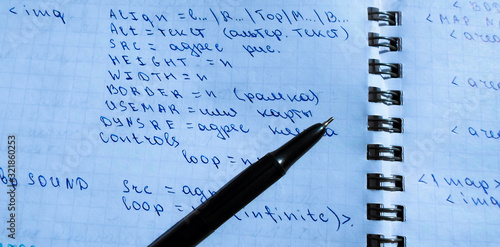 <img ALIGN = L...|R...|Top|M...|B...
Alt = текст (альтер. текст)
SRC = адрес рис.
HEIGHT = n
WIDTH = n
BORDER = n (рамка)
USEMAP = имя карты
DYNSRC = адрес
controls
loop = n
SOUND Src =
loop = (infinite)>
<MAP
<area
<area
<area
</map>
<img